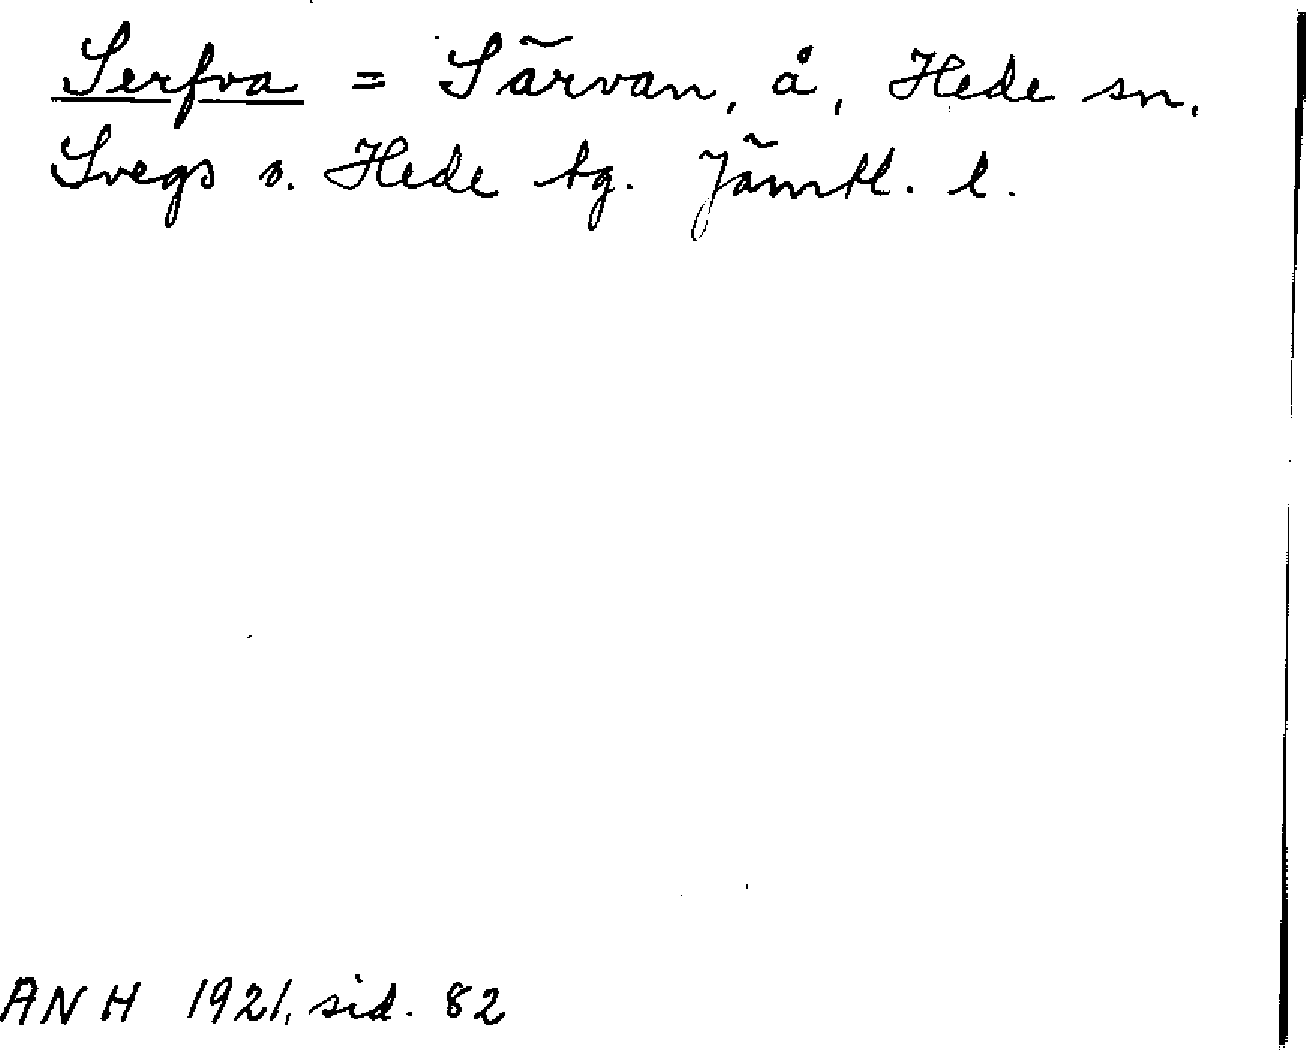 Serfva = Särvan, å, Hede sn.
Svegs o. Hede tg. Jämtl. l.
ANH 1921, sid. 82